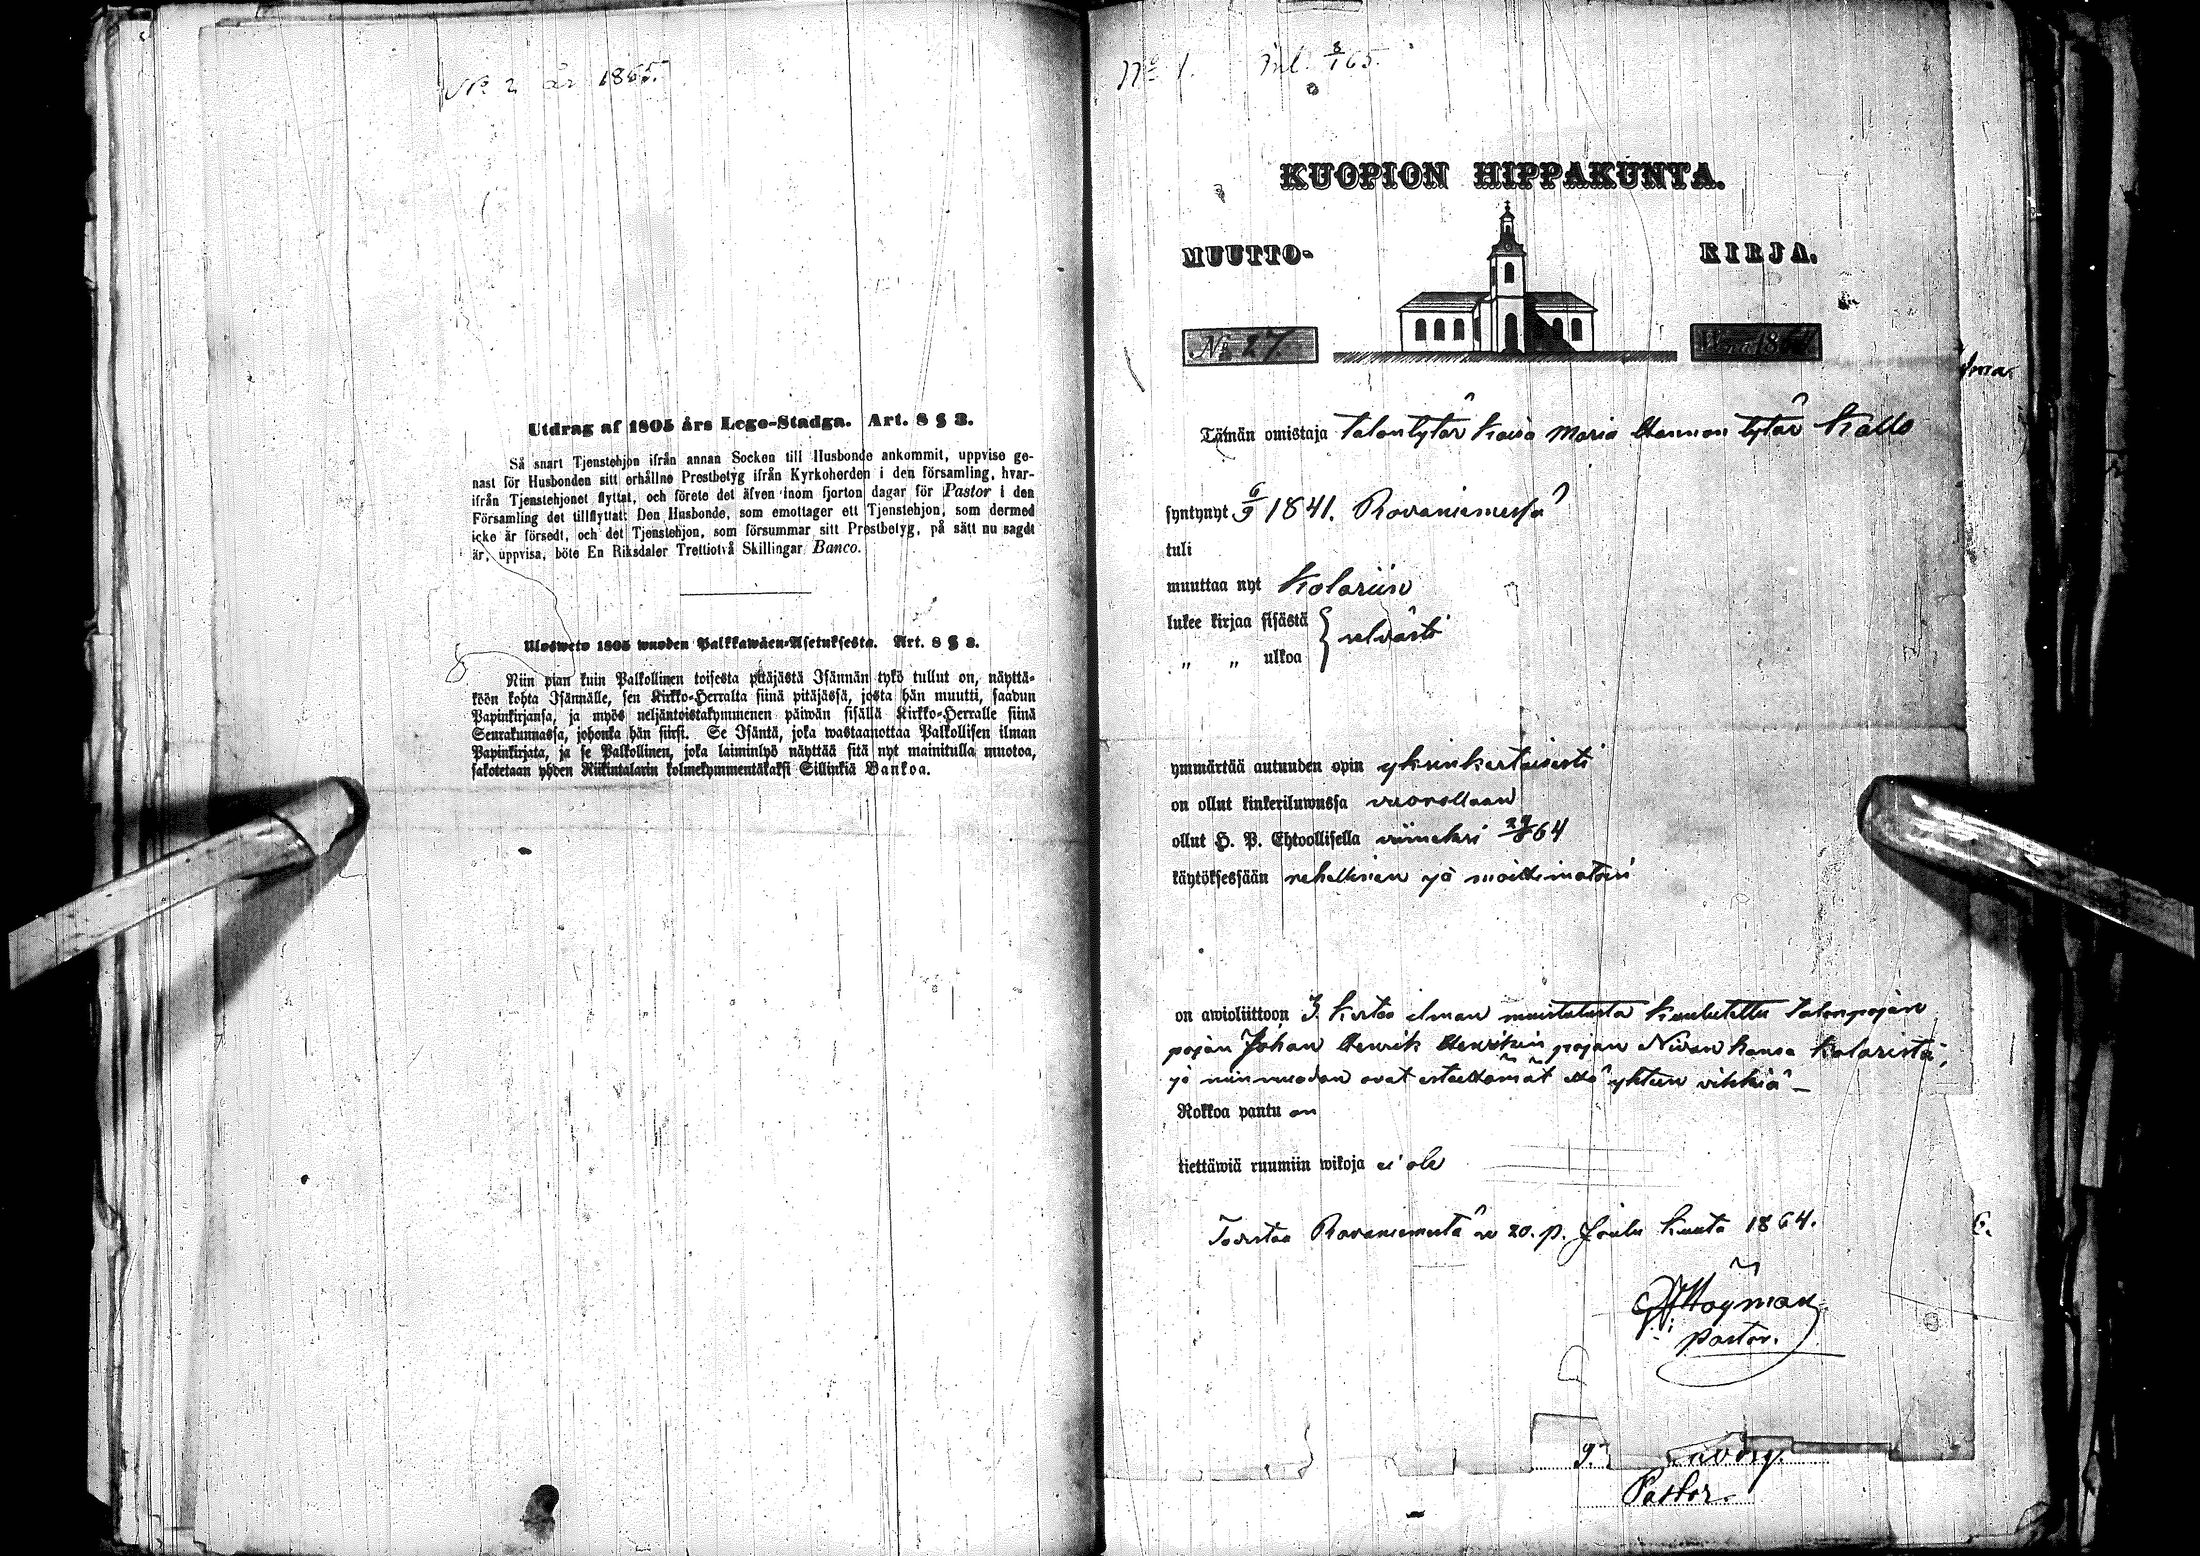 No 2 år 1865.
Utdrag af 1805 års Lego-Stadga. Art. 8 § 3.
Så snart Tjenstehjon ifrån annan Socken till Husbonde ankommit, uppvise ge-
nast för Husbonden sitt erhållne Prestbetyg ifrån Kyrkoherden i den församling, hvar-
ifrån Tjenstehjonet flyttat, och förete det äfven inom fjorton dagar för Pastor i den
Församling det tillflyttat: Den Husbonde, som emottager ett Tjenstehjon, som dermed
icke är försedt, och det Tjenstehjon, som försummar sitt Prestbetyg, på sätt nu sagdt
är, uppvisa, böte En Riksdaler Trettiotvå Skillingar Banco.
Ulosweto 1805 wuoden Palkkawäen-Asetuksesta. Art. 8 § 3.
Niin pian kuin Palkollinen toisesta pitäjästä Isännän tykö tullut on, näyttä-
köön kohta Isännälle, sen Kirkko-Herralta siinä pitäjässä, josta hän muutti, saadun
Papinkirjansa, ja myös neljäntoistakymmenen päiwän sisällä Kirkko-Herralle siinä
Seurakunnassa, johonka hän siirsi. Se Isäntä, joka wastaanottaa Palkollisen ilman
Papinkirjata, ja se Palkollinen, joka laiminlyö näyttää sitä nyt mainitulla muotoa,
sakotetaan yhden Riikintalarin kolmekymmentäkaksi Sillinkiä Bankoa.
No 1. Inl. 8/1 65.
KUOPION HIPPAKUNTA.
MUUTTO- KIRJA.
No 27. Wuona 1864
Tämän omistaja talontytär Kaisa Maria Hannun tytär Kallo
syntynyt 6/9 1841. Rovaniemessä
tuli
muuttaa nyt Kolariin
lukee kirjaa sisästä } selvästi
„ „ ulkoa
ymmärtää autuuden opin yksinkertaisesti
on ollut kinkeriluwussa vuorollaan
ollut H. P. Ehtoollisella viimeksi 64
käytöksessään rehellinen ja moittimatoin
on awioliittoon 3 kertaa ilman muistutusta kuulutettu talonpojan
pojan Johan Henrik Henrikin pojan Nivan kanssa Kolarista,
ja niin muodon ovat esteettömät että yhteen vihkiä –
Rokkoa pantu on
tiettäwiä ruumiin wikoja ei ole
Todistaa Rovaniemestä 20. p. Joulu kuuta 1864.
Höyman
pastor.
Pastor.